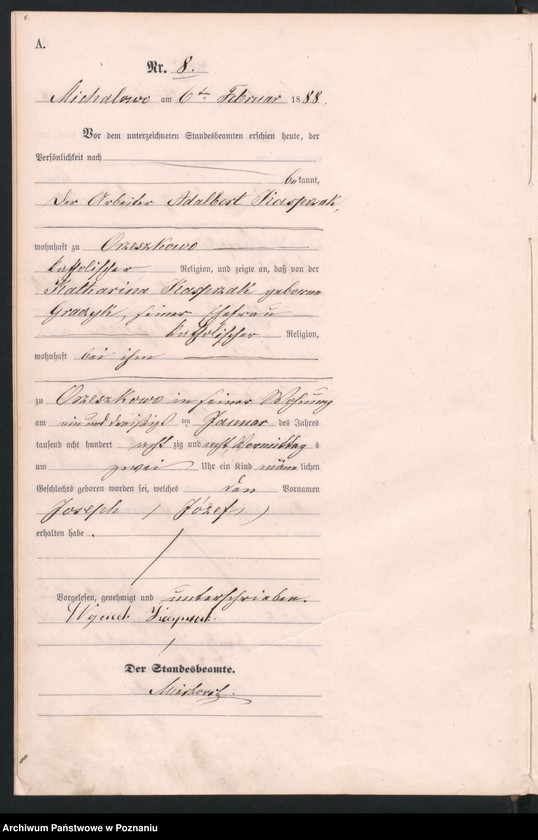 A.
Nr. 8.
Michalowo am 6ten Februar 1888.
Vor dem unterzeichneten Standesbeamten erschien heute, der
Persönlichkeit nach
bekannt,
der Arbeiter Adalbert Kasprzak,
wohnhaft zu Orzeszkowo
katholischer Religion, und zeigte an, daß von der
Katharina Kasprzak geborne
Gradyk, seiner Ehefrau
katholischer Religion,
wohnhaft bei ihm
zu Orzeszkowo in seiner Wohnung
am ein und dreißigsten Januar des Jahres
tausend acht hundert achtzig und acht Vormittags
um zwei Uhr ein Kind männlichen
Geschlechts geboren worden sei, welches den Vornamen
Joseph (Józef)
erhalten habe.
Vorgelesen, genehmigt und unterschrieben.
Kasprzak
Der Standesbeamte.
Archiwum Państwowe w Poznaniu